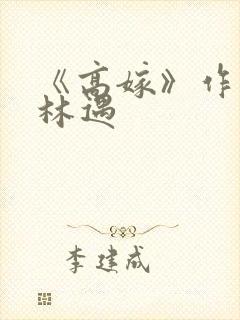 《高嫁》作
林遇
李建成